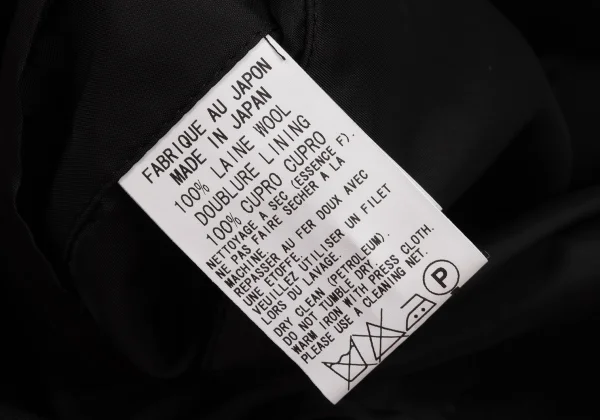 FABRIQUE AU JAPON
MADE IN JAPAN
100% LAINE WOOL
DOUBLURE LINING
100% CUPRO CUPRO
NETTOYAGE A SEC (ESSENCE F).
NE PAS FAIRE SECHER A LA
MACHINE.
REPASSER AU FER DOUX AVEC
UNE ETOFFE.
VEUILLEZ UTILISER UN FILET
LORS DU LAVAGE.
DRY CLEAN (PETROLEUM).
DO NOT TUMBLE DRY.
WARM IRON WITH PRESS CLOTH.
PLEASE USE A CLEANING NET.
P